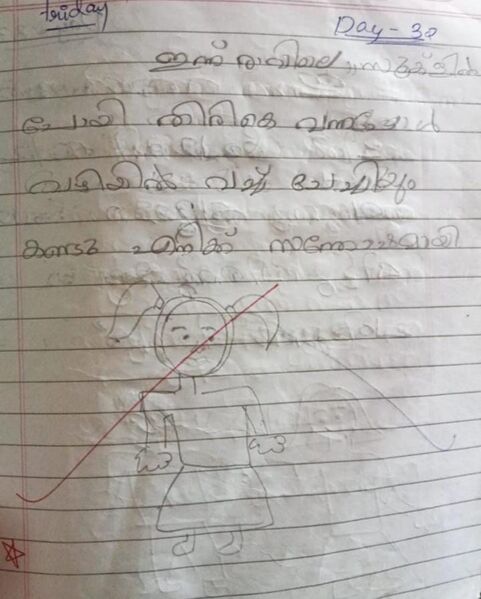 friday
Day - 30
ഇന്ന് രാവിലെ സ്കൂളിൽ
പോയി തിരികെ വന്നപ്പോൾ
വഴിയിൽ വച്ച് ചേച്ചിയും
കണ്ടു എനിക്ക് സന്തോഷമായി